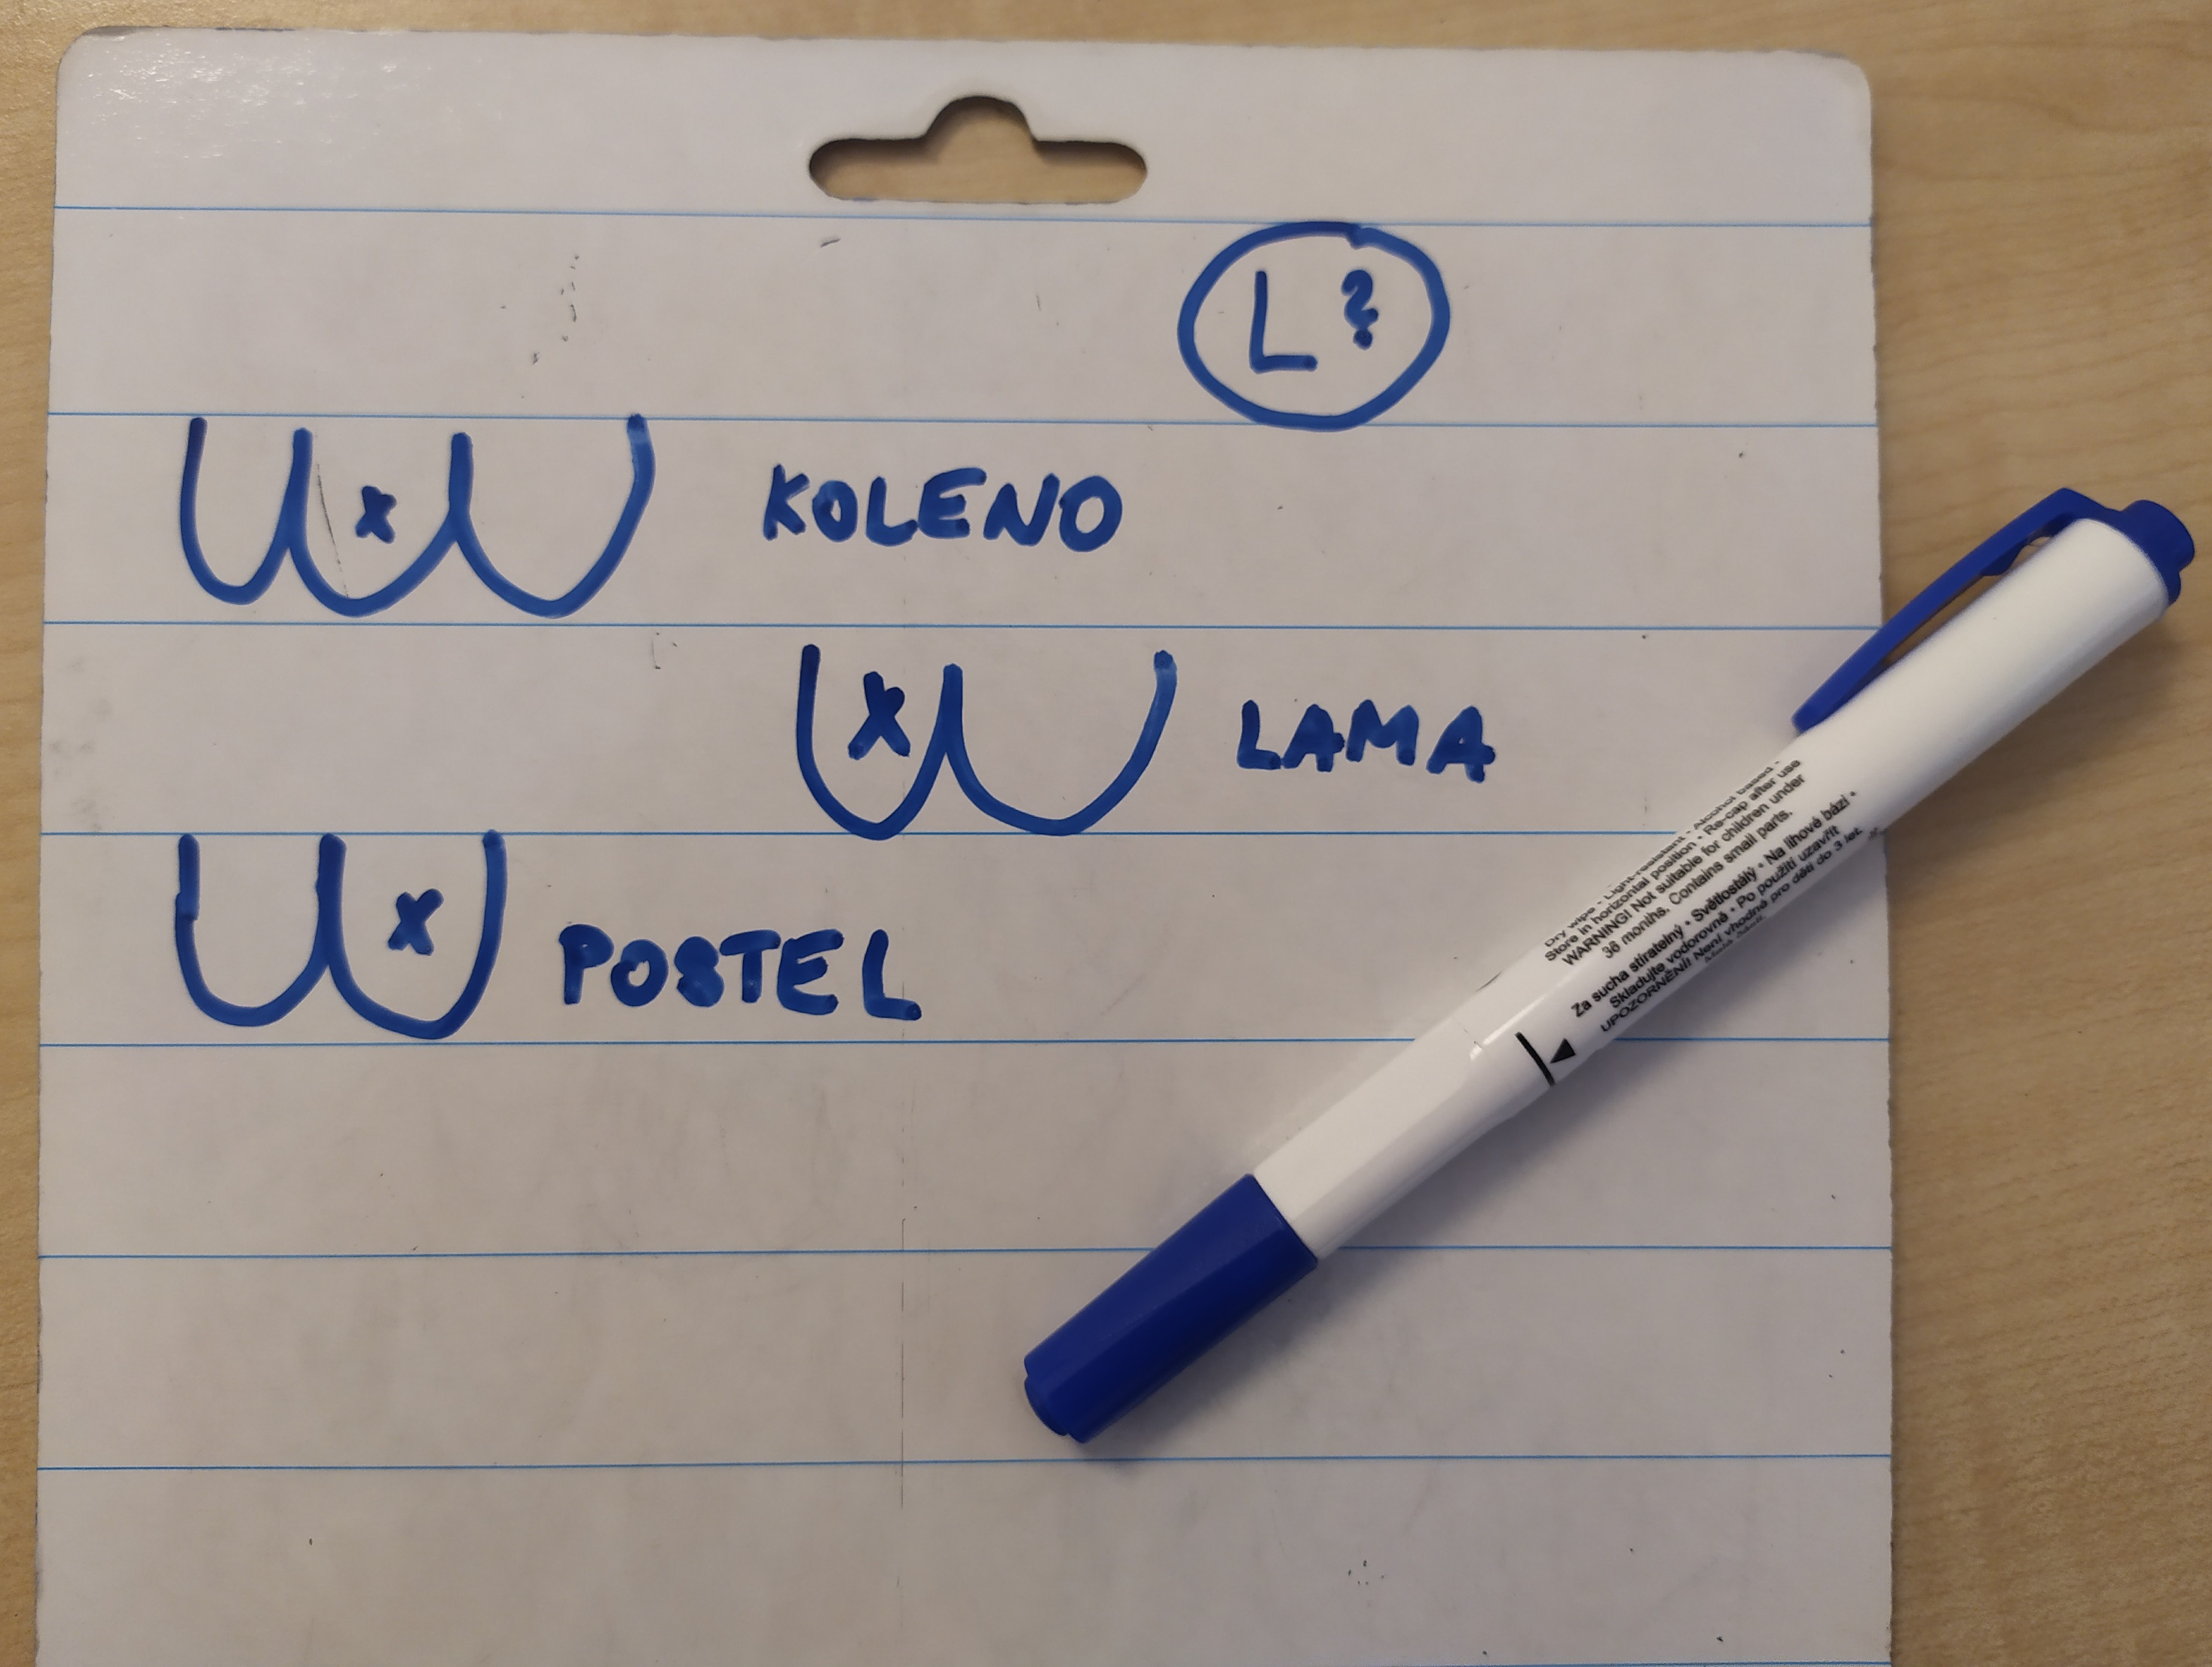 L?
x KOLENO
x LAMA
x POSTEL
Dry wipe • Light-resistant • Alcohol based •
Store in horizontal position • Re-cap after use
WARNING! Not suitable for children under
36 months. Contains small parts.
Za sucha stíratelný • Světlostálý • Na lihové bázi •
Skladujte vodorovně • Po použití uzavřít
UPOZORNĚNÍ! Není vhodné pro děti do 3 let.